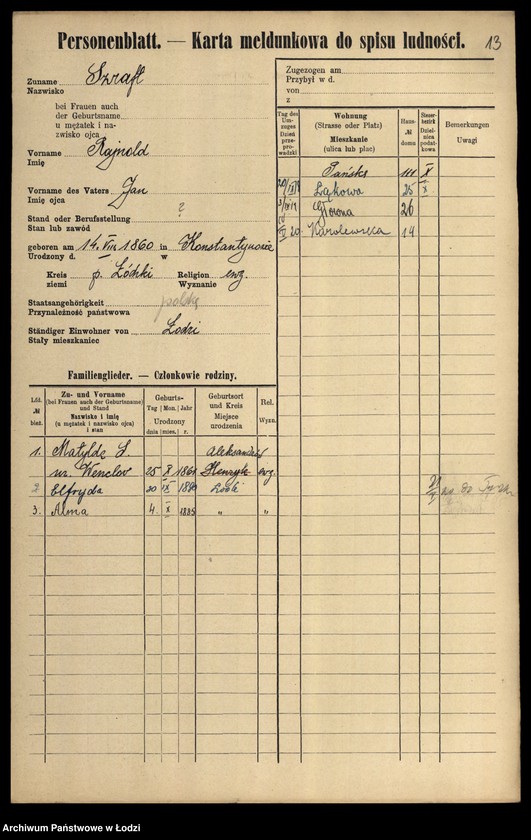 Personenblatt. — Karta meldunkowa do spisu ludności. 13
Zuname Szraft
Nazwisko
bei Frauen auch
der Geburtsname
u mężatek i na-
zwisko ojca
Vorname Rajnold
Imię
Vorname des Vaters Jan
Imię ojca
Stand oder Berufsstellung ?
Stan lub zawód
geboren am 14. VIII 1860 in Konstantynowie
Urodzony d. w
Kreis p. Łódzki Religion ewg.
ziemi Wyznanie
Staatsangehörigkeit polska
Przynależność państwowa
Ständiger Einwohner von Łodzi
Stały mieszkaniec
Zugezogen am
Przybył w d.
von
z
Tag des Um-zuges Dzień prze-prowadzki
Wohnung (Strasse oder Platz) Mieszkanie (ulica lub plac)
Haus- № domu
Steuer-bezirk Dziel-nica podat-kowa
Bemerkungen Uwagi
Pańska 111 X
Łąkowa 25 X
Główna 26
20. Karolewska 14
Familienglieder. — Członkowie rodziny.
Lfd. № bież.
Zu- und Vorname (bei Frauen auch der Geburtsname) und Stand Nazwisko i imię (u mężatek i nazwisko ojca) i stan
Geburts- Tag | Mon. | Jahr Urodzony dnia | mies. | r.
Geburtsort und Kreis Miejsce urodzenia
Rel. Wyzn.
1. Matylda S. Aleksandrów
ur. Wenclow 25 X 1861 Henryk ewg.
2 Elfryda 20 IX Łodzi
3. Alma 4. X 1885 „ „
Archiwum Państwowe w Łodzi